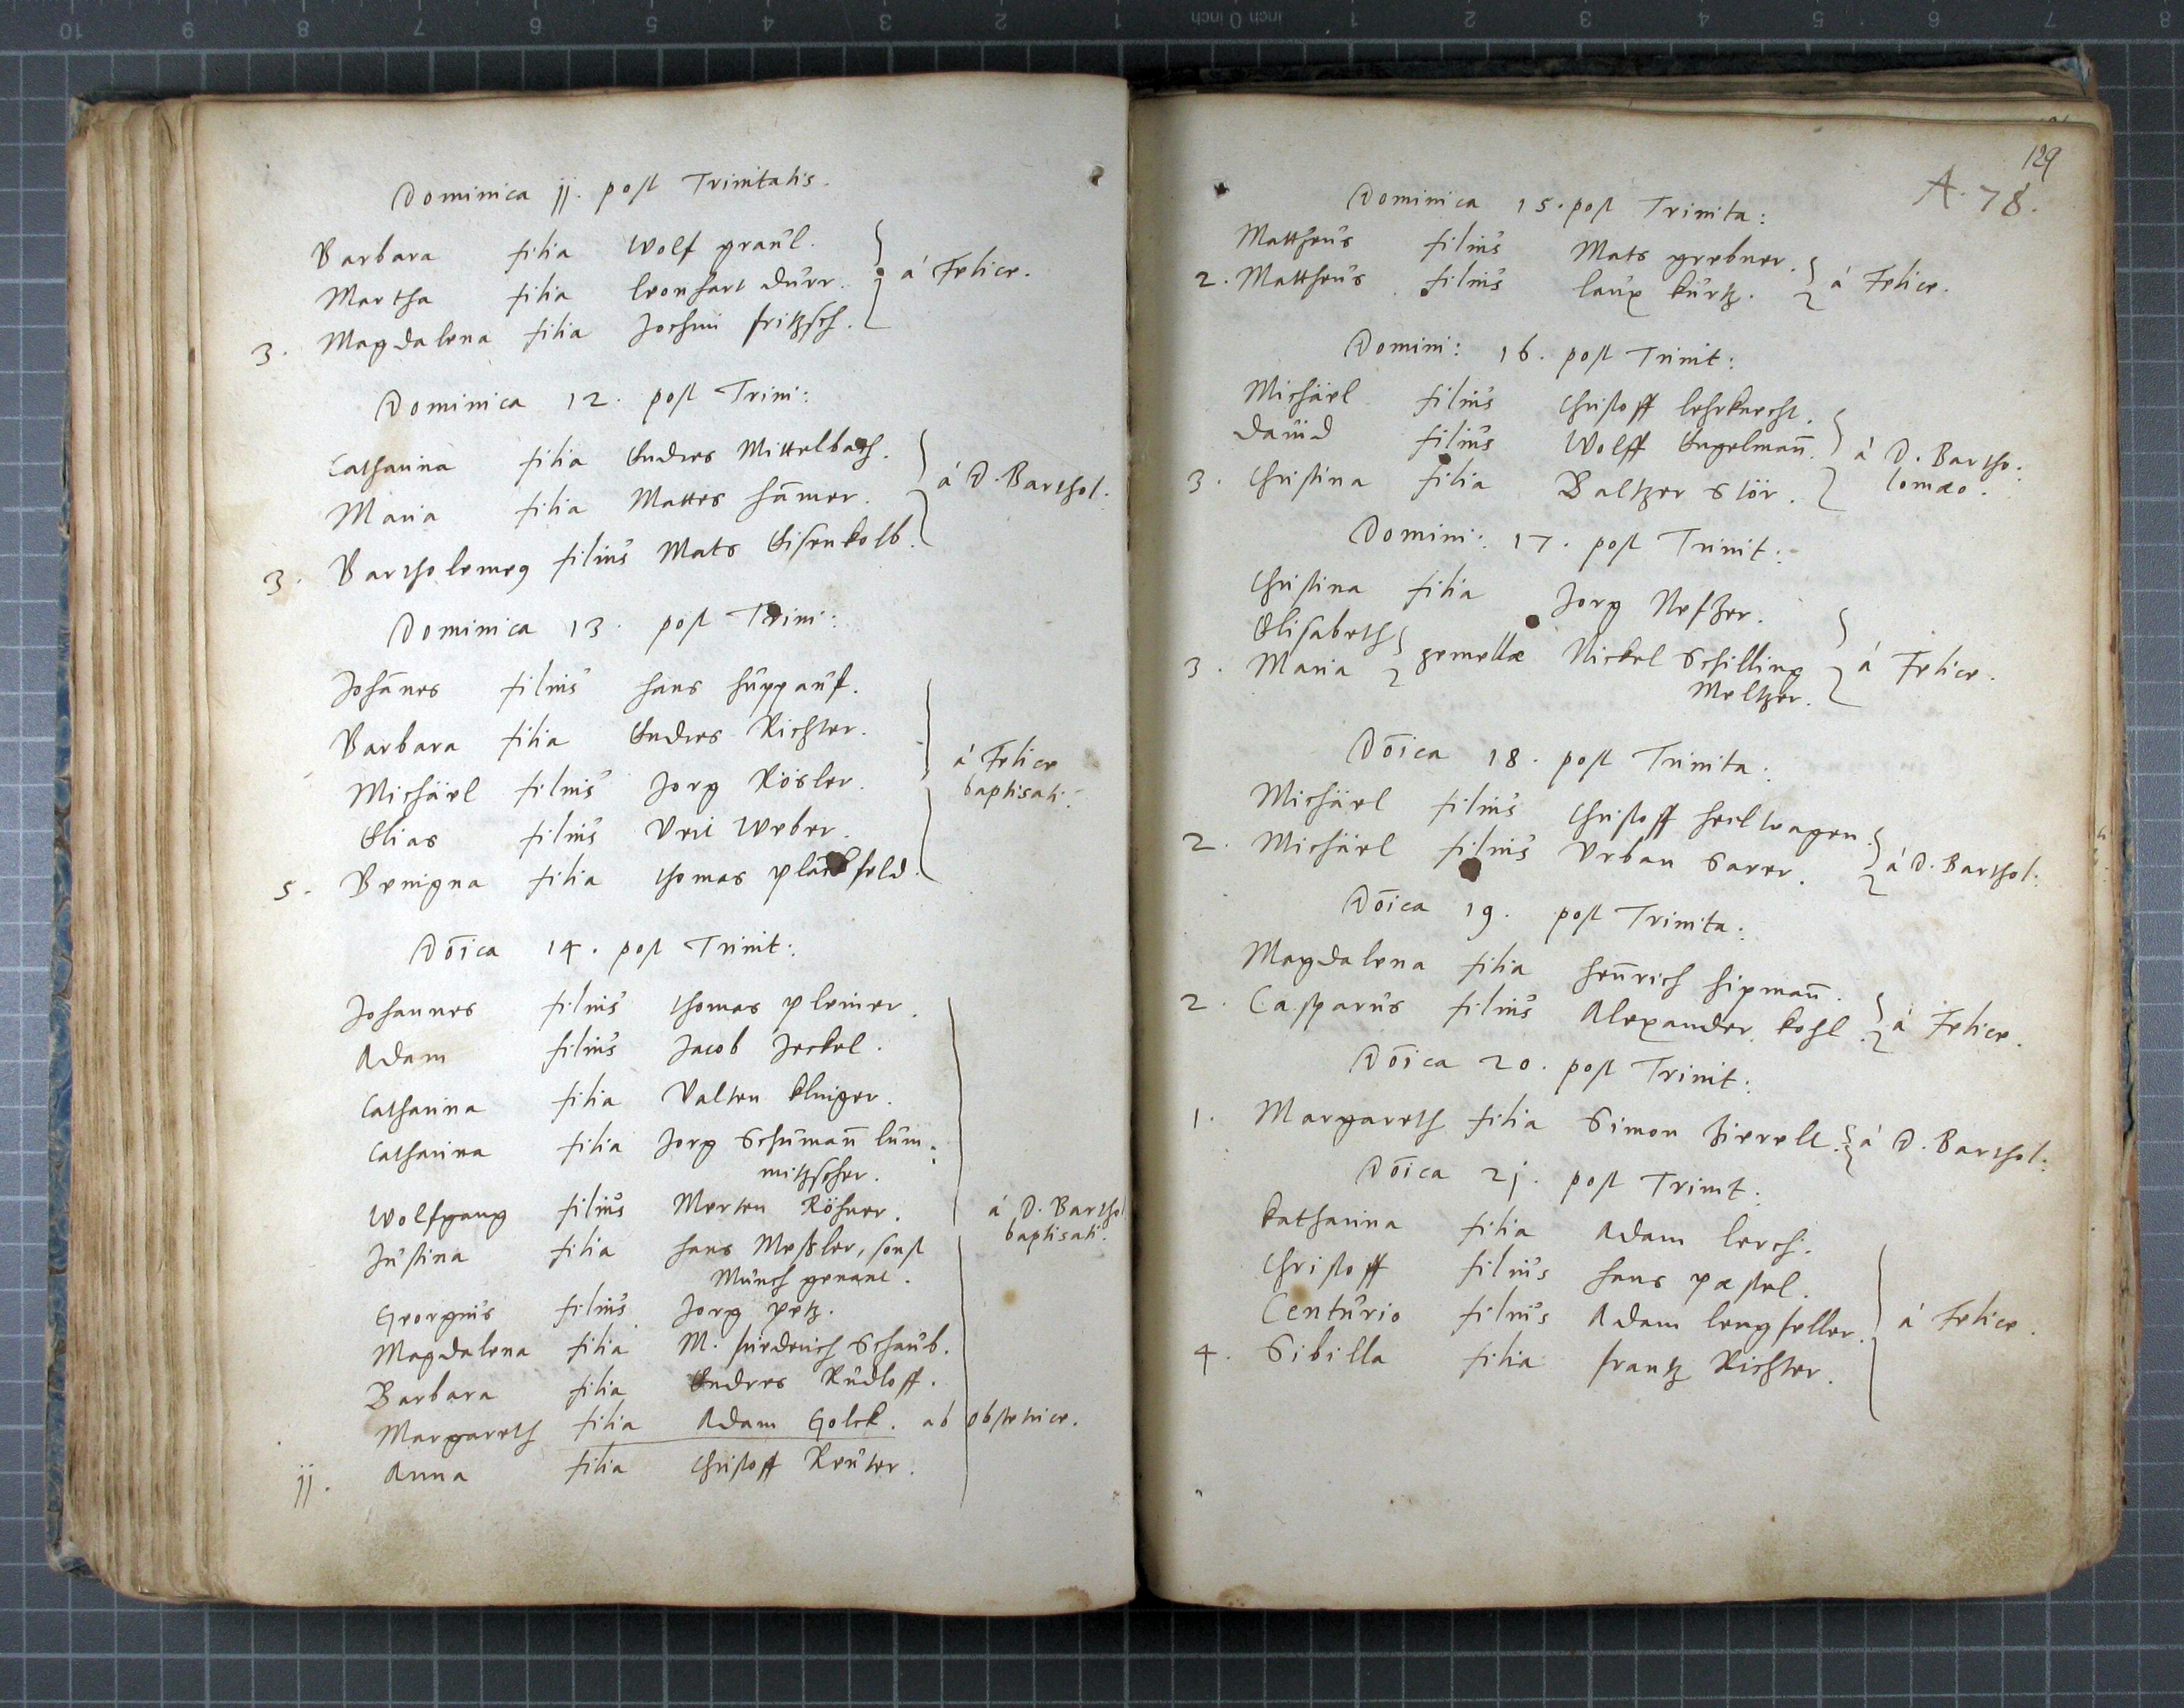 Dominica jj. post Trinitatis.
Barbara filia Wolf graul.
Martha filia leonhart durr. } á Felice.
3. Magdalena filia Jochim fritzsch.
Dominica 12. post Trini:
Catharina filia Endres Mittelbach.
Maria filia Mattes hāmer. } á D. Barthol:
3. Bartholemeg filius Mats Eisenkolb.
Dominica 13. post Trini:
Johānes filius hans huppauf.
Barbara filia Endres Richter.
Michäel filius Jorg Rösler. á Felice
Elias filius Veit Weber. baptisati.
5. Benigna filia thomas feld.
Dōica 14. post Trinit:
Johannes filius thomas pleiner.
Adam filius Jacob Jeckel.
Catharina filia Valten klinger.
Catharina filia Jorg Schumañ lum:
mitzscher.
Wolfgang filius Merten Röhner. á D. Barthol
Justina filia hans Meßler, sonst baptisati.
Munch genant.
Georgius filius Jorg petz.
Magdalena filia M. friederich Schaub.
Barbara filia Endres Rudloff.
Margareth filia Adam Golck. ab obstetrice.
jj. Anna filia Christoff Reuter.
129
A. 78.
Dominica 15. post Trinita:
Mattheus filius Mats grebner.
2. Mattheus filius laux kurtz. } á Felice.
Domini: 16. post Trinit:
Michäel filius Christoff lehrknecht.
Dauid filius Wolff Engelmañ. } á D. Bartho:
3. Christina filia Baltzer Stör. lomæo.
Domini: 17. post Trinit:
Christina filia Jorg Nefzer.
Elisabeth
3. Maria } gemellæ Nickel Schilling } á Felice.
Meltzer.
Dōica 18. post Trinita:
Michäel filius Christoff heilwagen.
2. Michäel filius Vrban Sarer. } á D. Barthol:
Dōica 19. post Trinita:
Magdalena filia heñrich hipmañ.
2. Casparus filius Alexander kohl. } á Felice.
Dōica 20. post Trinit:
1. Margareth filia Simon Zierelt. } á D. Barthol:
Dōica 2j. post Trinit:
Katharina filia Adam lerch.
Christoff filius hans pæstel.
Centurio filius Adam lengfeller. } á Felice.
4. Sibilla filia frantz Richter.